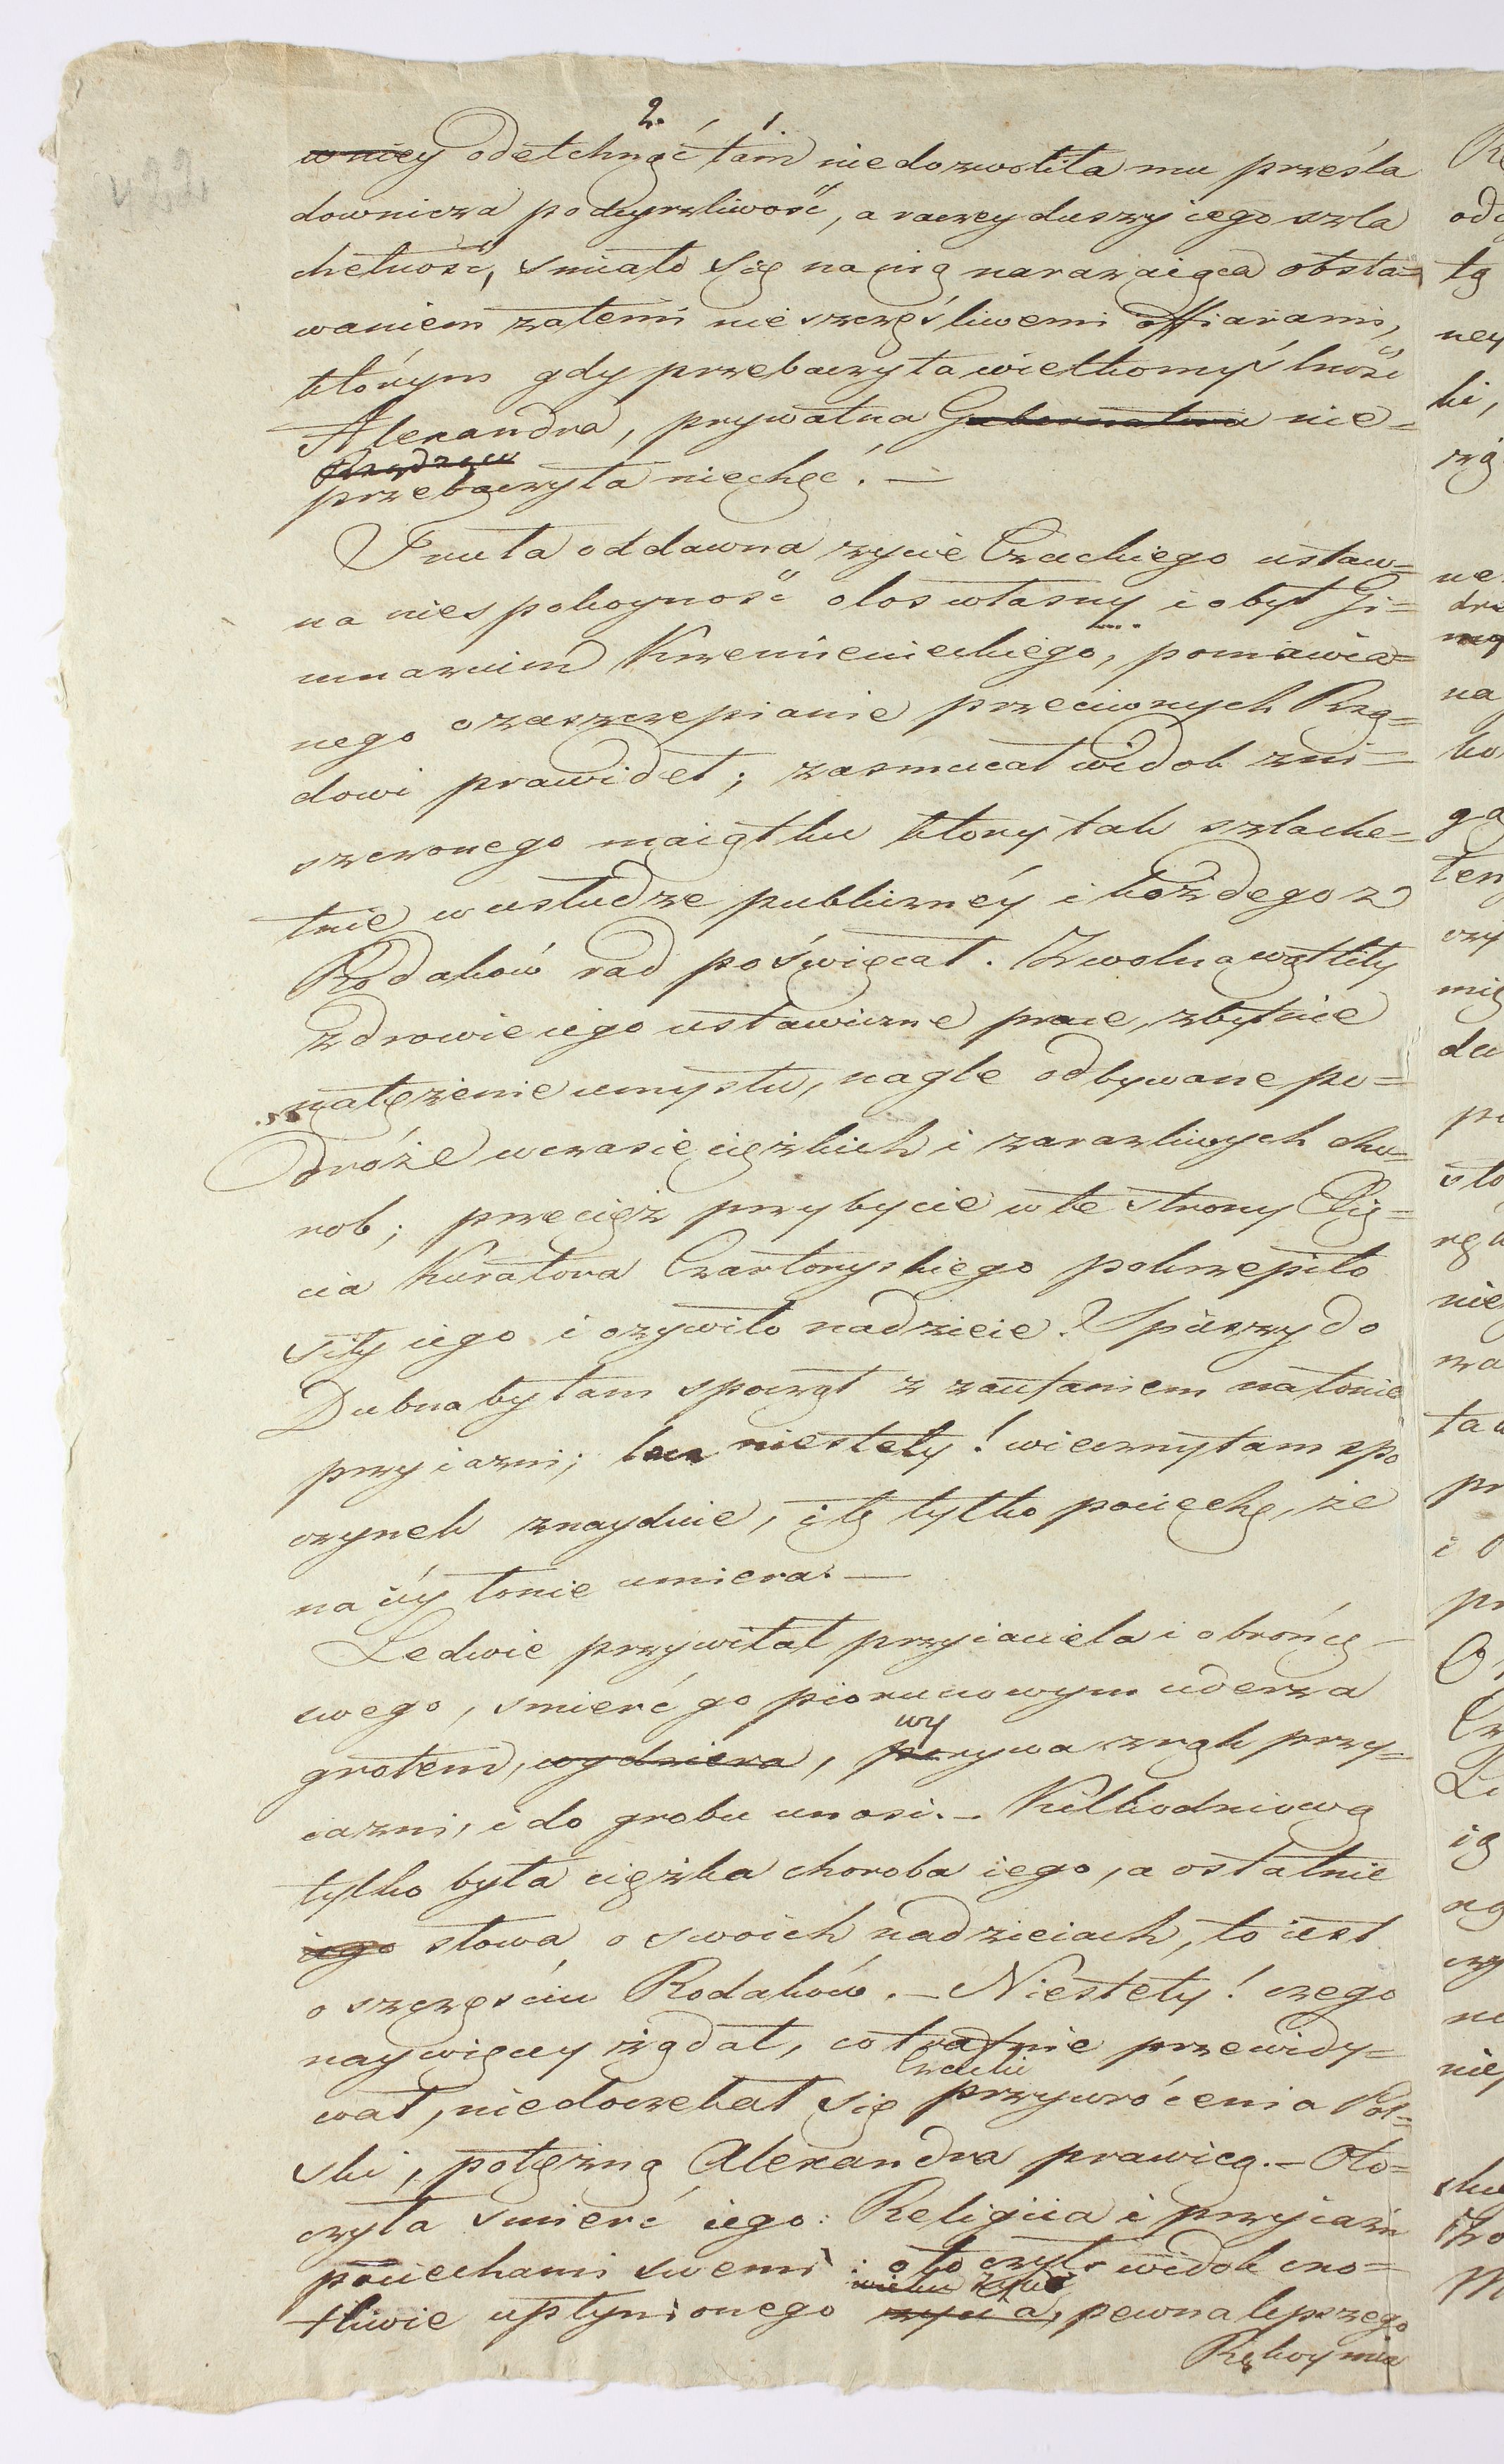 w niey odetchnąć tam niedozwoliła mu prześla
downicza podeyrzliwość, a raczey duszy iego szla
chetność, smiało się na nią narażaiąca obsta=
waniem zatemi nieszczęśliwemi offiarami,
którym gdy przebaczyła wielkomyślność
Alexandra, prywatna Gubernatora nie=
Rządzcow
przebaczyła niechęć. —
Truła oddawna życie Czackiego ustaw=
na niespokoyność o los własny i o byt Gi=
mnazium Krzemienieckiego, pomawia=
nego o zaszczepianie przeciwnych Rzą=
dowi prawideł; zasmucał widok zni=
szczonego maiątku ktory tak szlache=
tnie w usłudze publiczney i każdego z
Rodaków rad poświęcał. Zwolna wątliły
zdrowie iego ustawiczne prace, zbytnie
natężenie umysłu, nagle odbywane po=
dróże w czasie ciężkich i zarazliwych cho=
rob; przecięż przybycie w te strony Xię=
cia Kuratora Czartoryskiego pokrzepiło
siły iego i ożywiło nadzieie. Spieszy do
Dubna by tam spoczął z zaufaniem na łonie
przyiazni; lecz niestety! wieczny tam spo
czynek znayduie, i tę tylko pociechę, że
na iéy łonie umiera. —
Ledwie przywitał przyiaciela i obrońcę
swego, smierć go piorunowym uderza
grotem, wydziera, porywa z rąk przy=
wy
iazni, i do grobu unosi. — Kilkodniową
tylko była ciężka choroba iego, a ostatnie
iego słowa o swoich nadzieiach, to iest
o szczęściu Rodaków. — Niestety! czego
naywięcey żądał, co trafnie przewidy=
wał, niedoczekał się Czacki przywrócenia Pol=
ski, potężną Alexandra prawicą. — Oto=
czyła smierć iego: Religiia i przyiaźn
pociechami swemi: otoczył widok cno=
tliwie upłynionego życia, pewna lepszego
Rękoymia